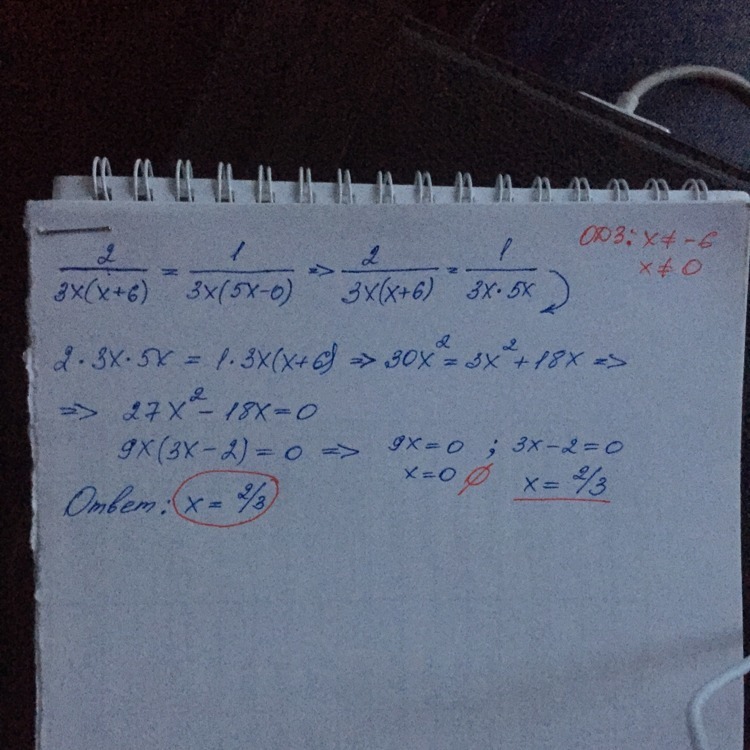 2/(3x(x+6)) = 1/(3x(5x-0)) => 2/(3x(x+6)) = 1/(3x·5x)
ОДЗ: x ≠ -6
x ≠ 0
2·3x·5x = 1·3x(x+6) => 30x² = 3x² + 18x =>
=> 27x² - 18x = 0
9x(3x-2) = 0 => 9x=0 ; 3x-2=0
x=0 ∅ x = 2/3
Ответ: x = 2/3